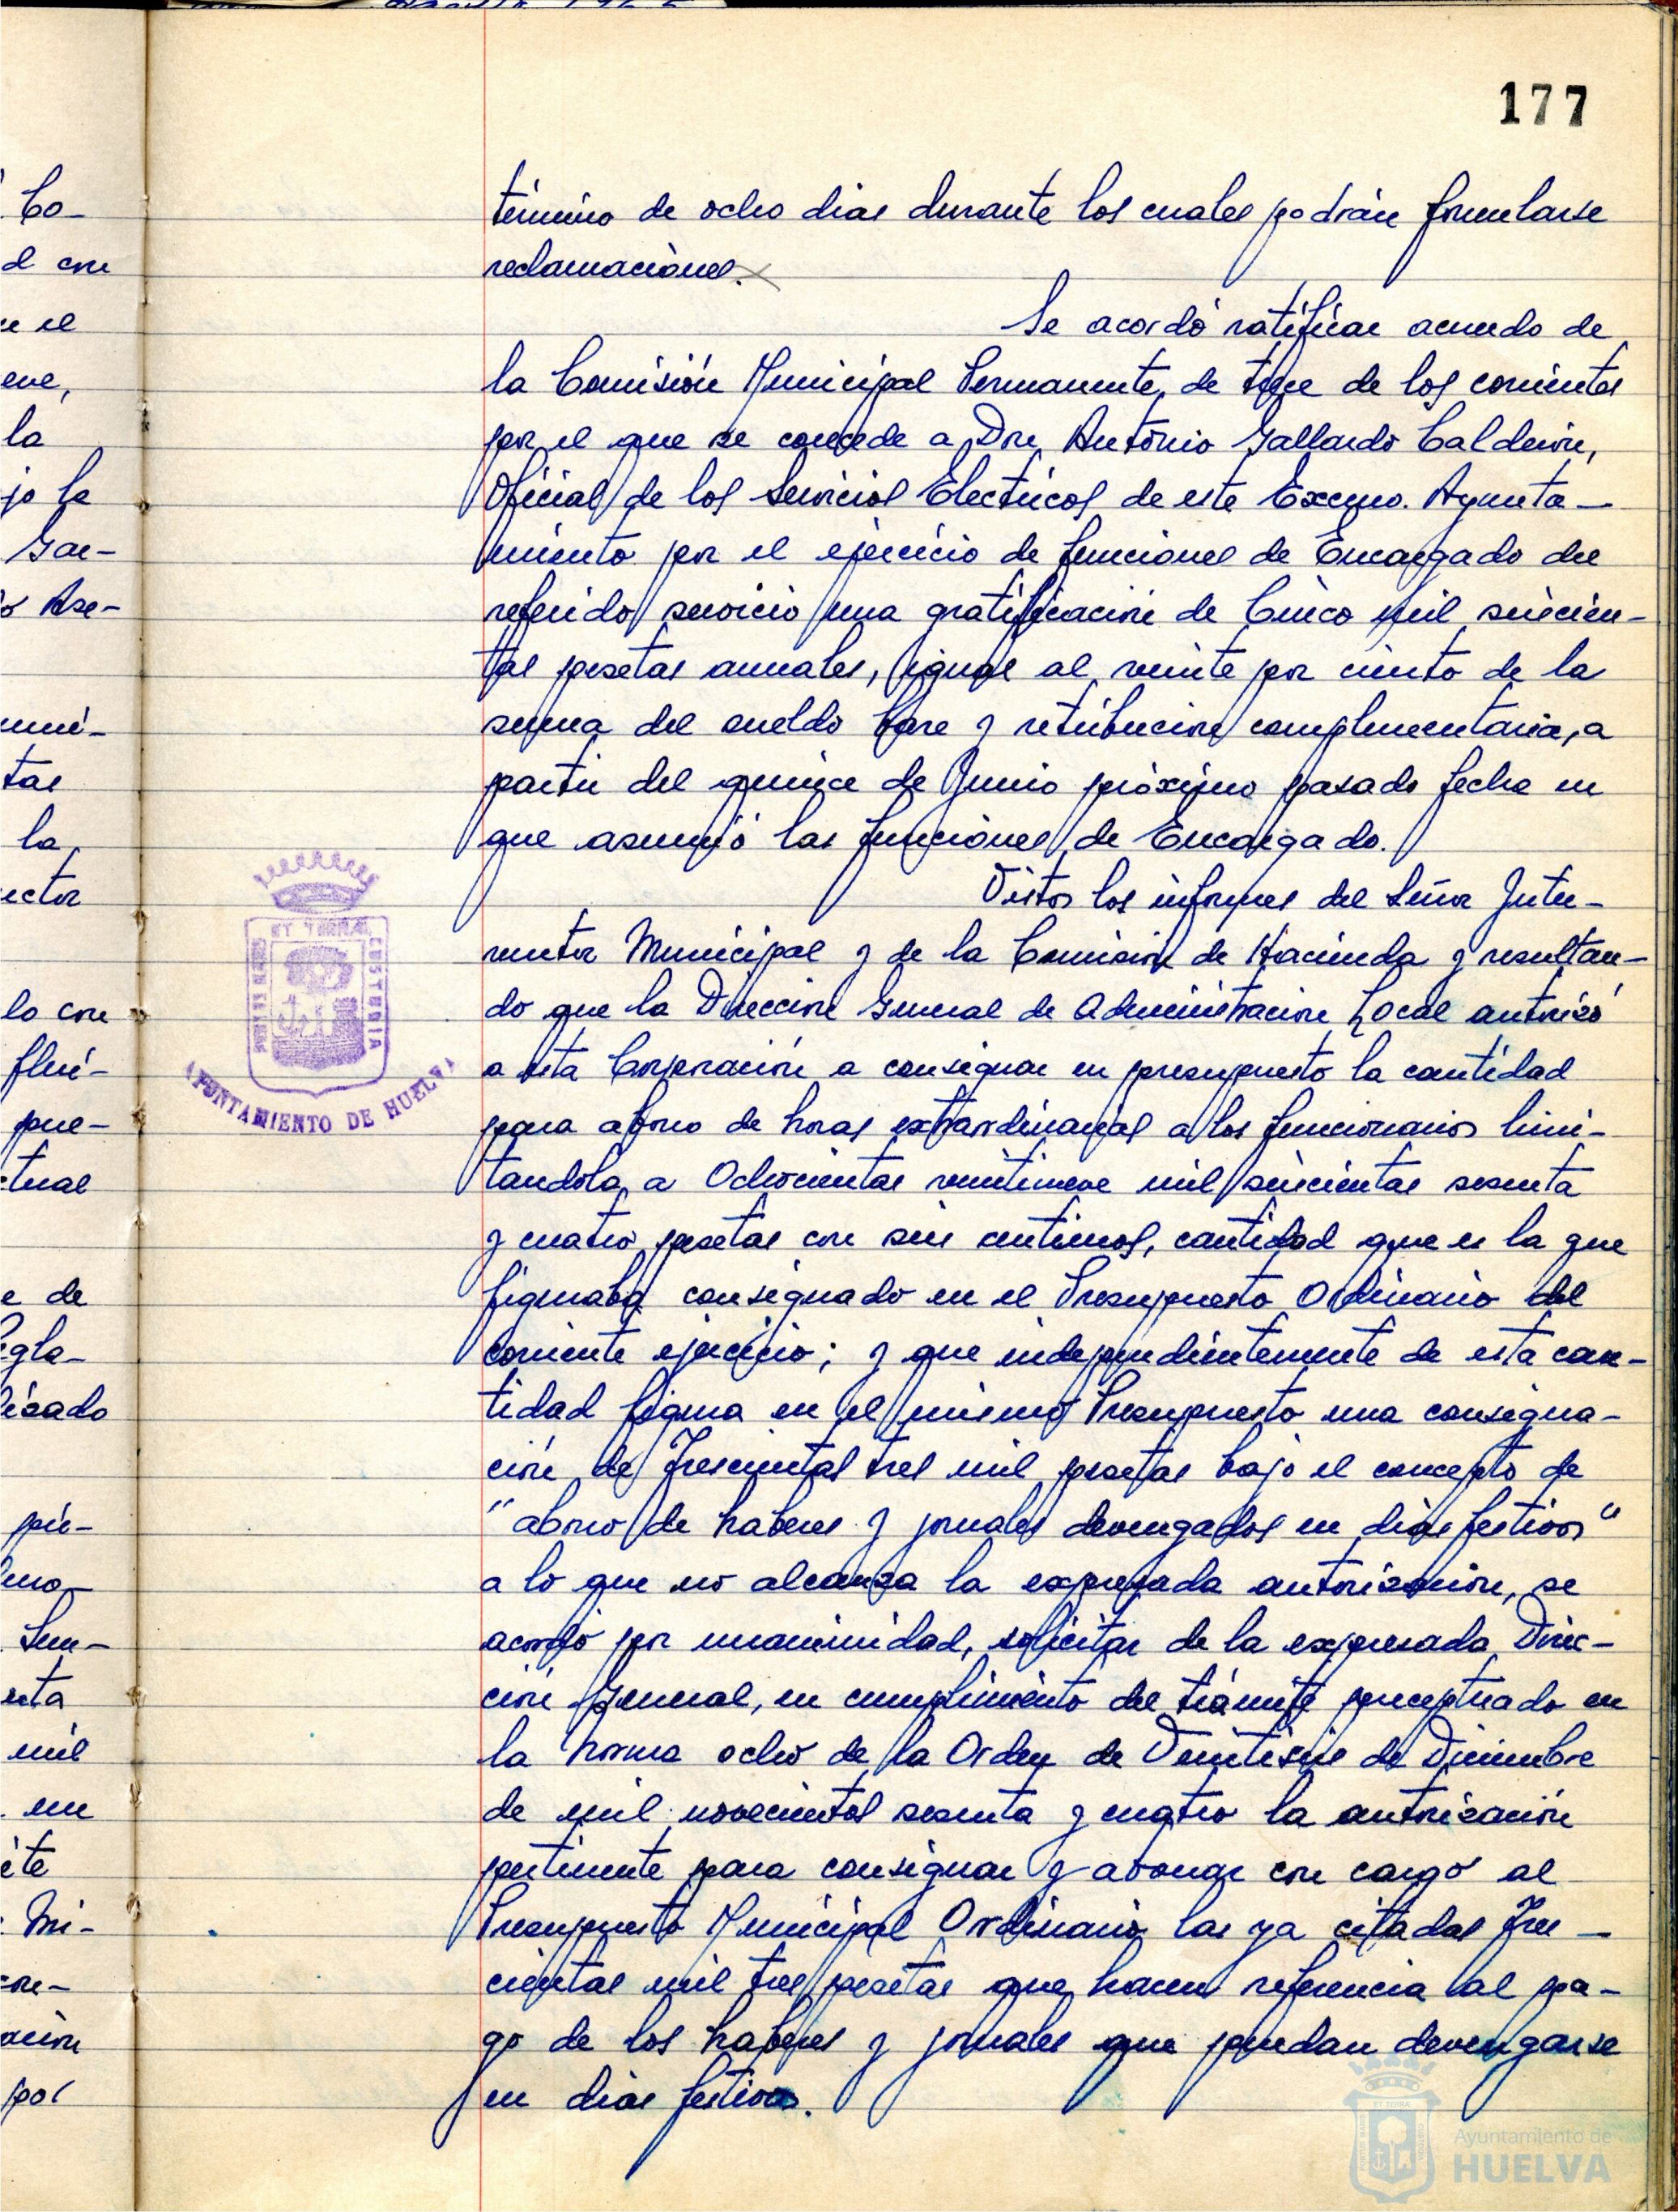 177
término de ocho dias durante los cuales podrán formularse
reclamaciones.
Se acordó ratificar acuerdo de
la Comisión Municipal Permanente, de trece de los corrientes
por el que se concede a Don Antonio Gallardo Calderón,
Oficial de los Servicios Electricos de este Excmo. Ayunta-
miento por el ejercicio de funciones de Encargado del
referido servicio una gratificación de Cinco mil seiscien-
tas pesetas anuales, igual al veinte por ciento de la
suma del sueldo base y retribucion complementaria, a
partir del quince de Junio próximo pasado fecha en
que asumió las funciones de Encargado.
Vistos los informes del Señor Inter-
ventor Municipal y de la Comision de Hacienda y resultan-
do que la Direccion General de Administracion Local autorizó
a esta Corporación a consignar en presupuesto la cantidad
para abono de horas extraordinarias a los funcionarios limi-
tandola a Ochocientas veintinueve mil seiscientas sesenta
y cuatro pesetas con seis centimos, cantidad que es la que
figuraba consignado en el Presupuesto Ordinario del
corriente ejercicio; y que independientemente de esta can-
tidad figura en el mismo Presupuesto una consigna-
ción de Trescientas tres mil pesetas bajo el concepto de
"abono de haberes y jornales devengados en dias festivos"
a lo que no alcanza la expresada autorizacion, se
acordó por unanimidad, solicitar de la expresada Direc-
ción General, en cumplimiento del trámite preceptuado en
la norma ocho de la Orden de Veintiseis de Diciembre
de mil novecientos sesenta y cuatro la autorización
pertinente para consignar y abonar con cargo al
Presupuesto Municipal Ordinario las ya citadas Tres-
cientas mil tres pesetas que hacen referencia al pa-
go de los haberes y jornales que puedan devengarse
en dias festivos.
AYUNTAMIENTO DE HUELVA
Ayuntamiento de
HUELVA